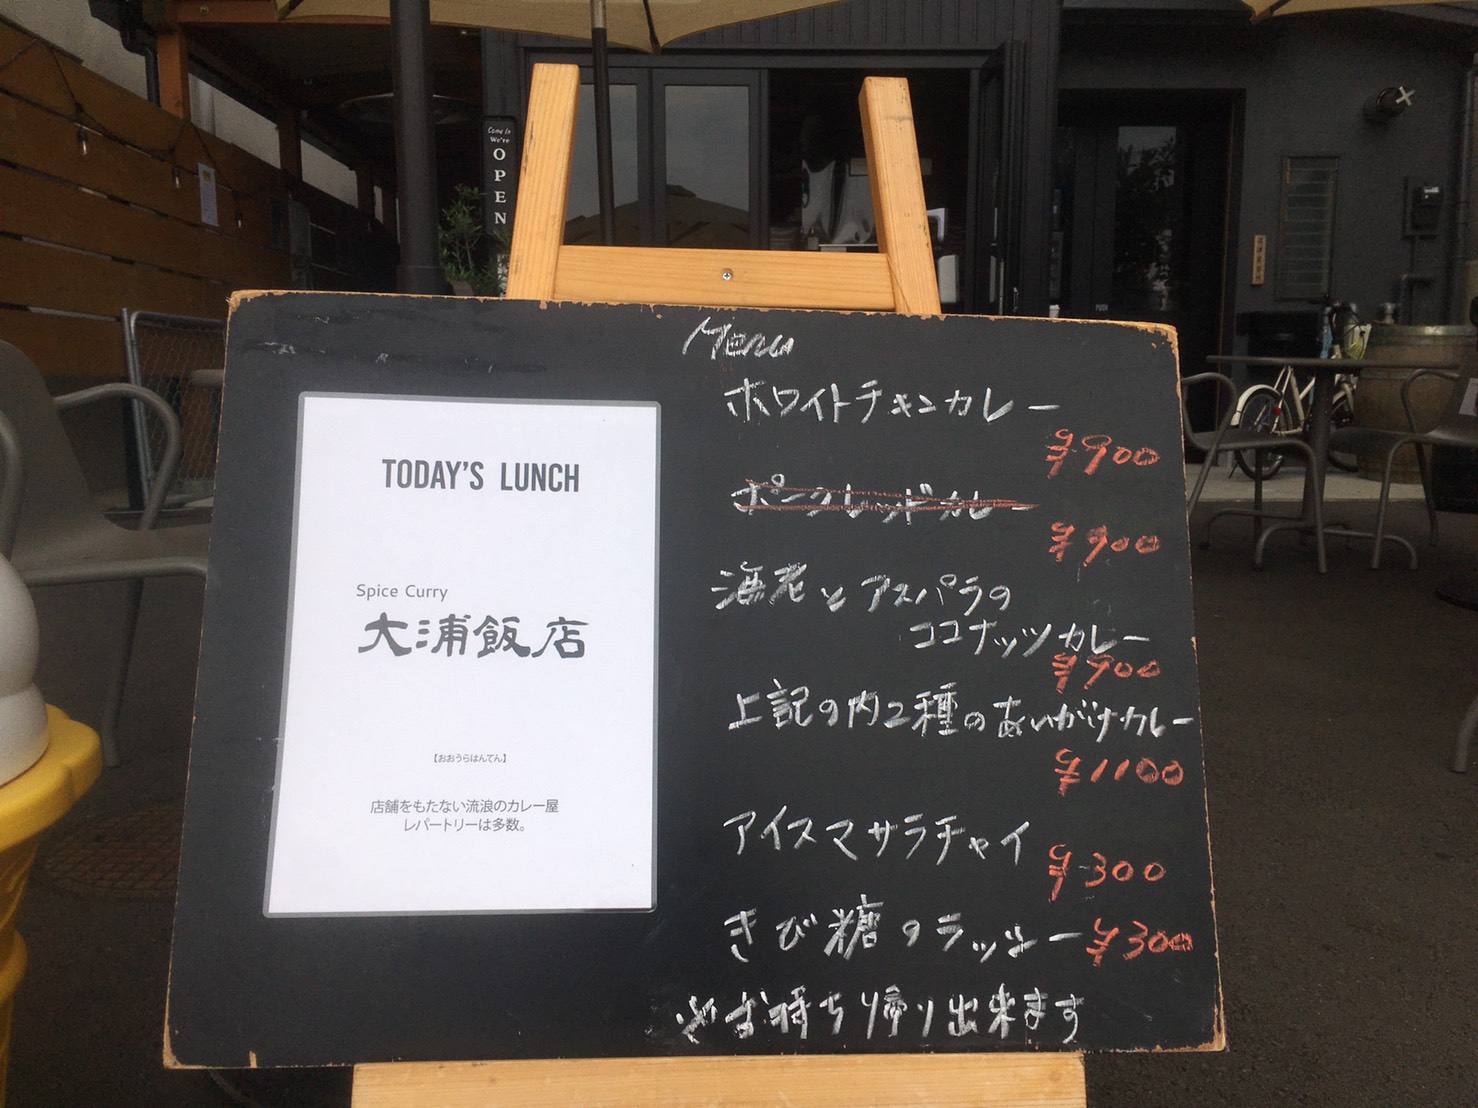 Come In
We're
OPEN
TODAY'S LUNCH
Spice Curry
大浦飯店
【おおうらはんてん】
店舗をもたない流浪のカレー屋
レパートリーは多数。
Menu
ホワイトチキンカレー
¥900
ポークレッドカレー
¥900
海老とアスパラの
ココナッツカレー
¥900
上記の内2種のあいがけカレー
¥1100
アイスマサラチャイ
¥300
きび糖のラッシー ¥300
※お持ち帰り出来ます